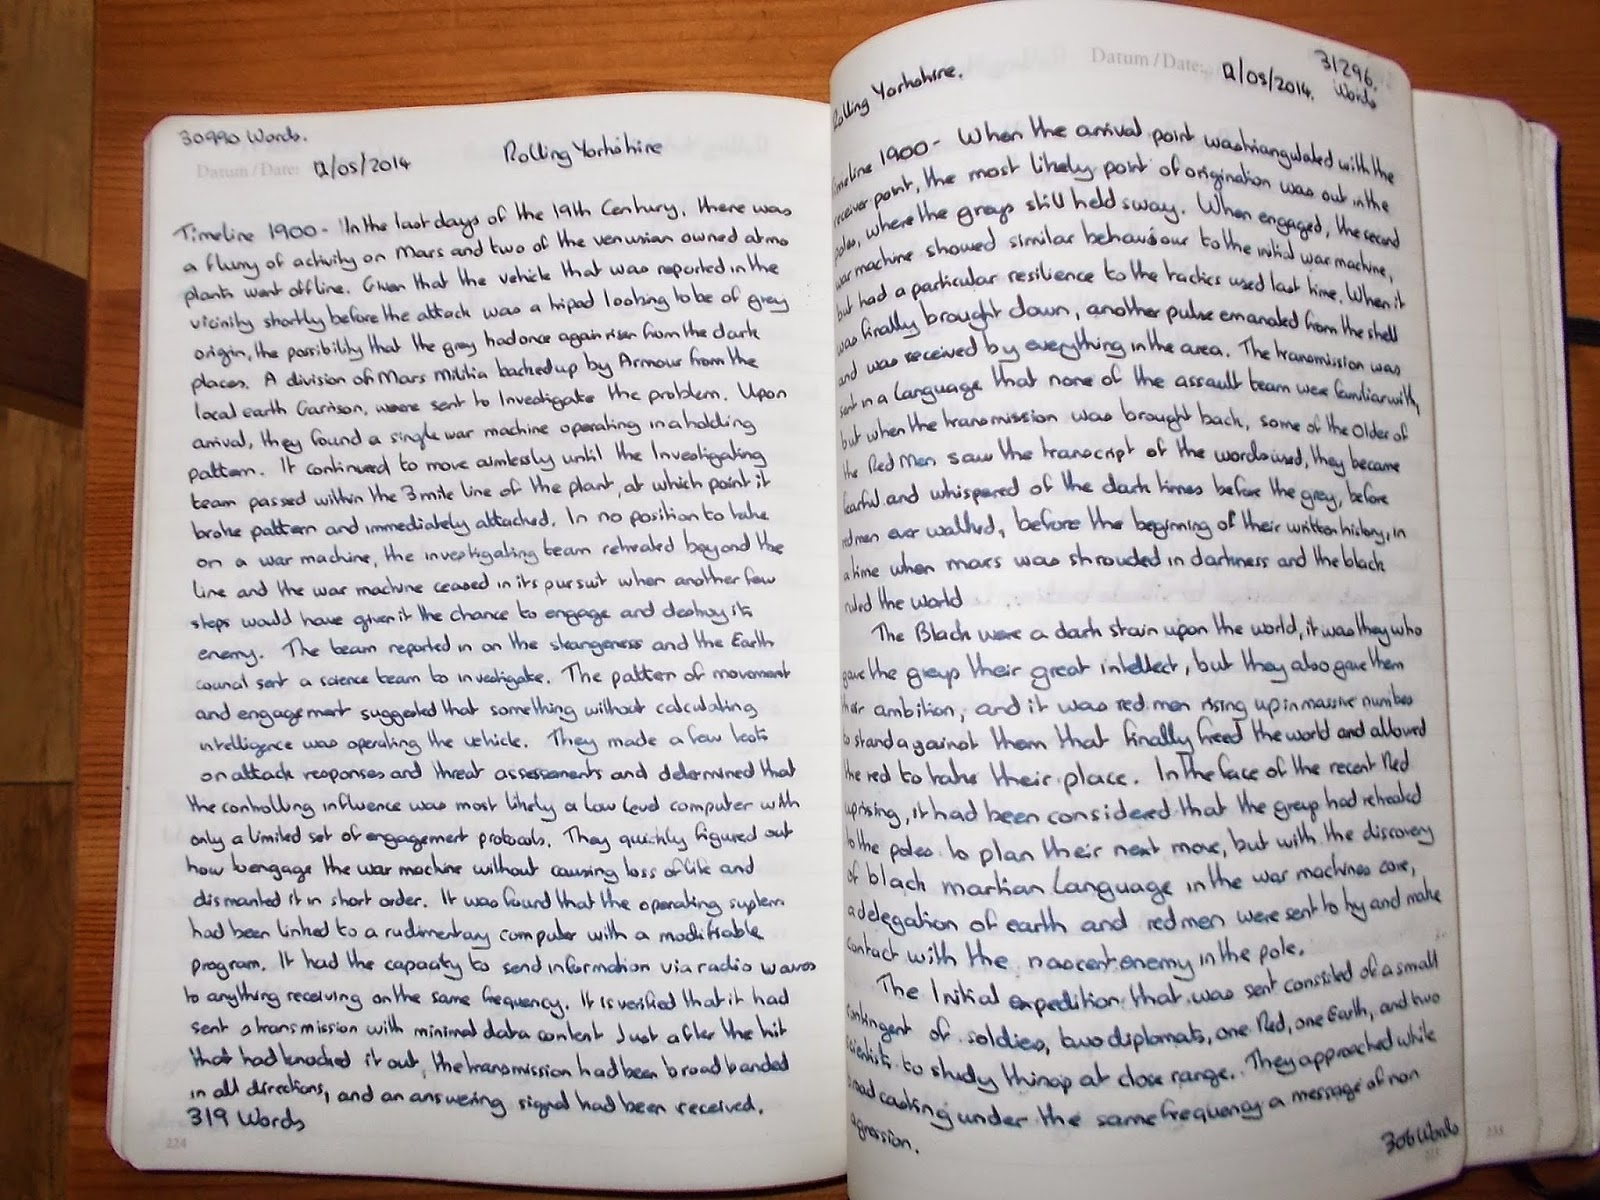 30990 Words.
Datum/Date: 12/05/2014 Rolling Yorkshire
Timeline 1900- In the last days of the 19th Century, there was
a flurry of activity on Mars and two of the venusian owned atmo
plants went offline. Given that the vehicle that was reported in the
vicinity shortly before the attack was a tripod looking to be of grey
origin, the possibility that the grey had once again risen from the dark
places. A division of Mars Militia backed up by Armour from the
local earth Garrison, were sent to Investigate the problem. Upon
arrival, they found a single war machine operating in a holding
pattern. It continued to move aimlessly until the Investigating
team passed within the 3 mile line of the plant, at which point it
broke pattern and immediately attacked. In no position to take
on a war machine, the investigating team retreated beyond the
line and the war machine ceased in its pursuit when another few
steps would have given it the chance to engage and destroy its
enemy. The team reported in on the strangeness and the Earth
council sent a science team to investigate. The pattern of movement
and engagement suggested that something without calculating
intelligence was operating the vehicle. They made a few tests
on attack responses and threat assessments and determined that
the controlling influence was most likely a low level computer with
only a limited set of engagement protocols. They quickly figured out
how to engage the war machine without causing loss of life and
dismantled it in short order. It was found that the operating system
had been linked to a rudimentary computer with a modifiable
program. It had the capacity to send information via radio waves
to anything receiving on the same frequency. It is verified that it had
sent a transmission with minimal data content Just after the hit
that had knocked it out, the transmission had been broad banded
in all directions, and an answering signal had been received.
319 Words
224
Rolling Yorkshire. Datum/Date: 12/05/2014. 31296.
Words
Timeline 1900- When the arrival point was triangulated with the
receiver point, the most likely point of origination was out in the
poles, where the greys still held sway. When engaged, the second
war machine showed similar behaviour to the initial war machine,
but had a particular resilience to the tactics used last time. When it
was finally brought down, another pulse emanated from the shell
and was received by everything in the area. The transmission was
sent in a language that none of the assault team were familiar with,
but when the transmission was brought back, some of the Older of
the Red Men saw the transcript of the words used, they became
fearful and whispered of the dark times before the grey, before
redmen ever walked, before the beginning of their written history, in
a time when mars was shrouded in darkness and the black
ruled the world
The Black were a dark stain upon the world, it was they who
gave the greys their great intellect, but they also gave them
their ambition, and it was red men rising up in massive numbers
to stand against them that finally freed the world and allowed
the red to take their place. In the face of the recent Red
uprising, it had been considered that the greys had retreated
to the poles to plan their next move, but with the discovery
of black martian language in the war machines core,
a delegation of earth and red men were sent to try and make
contact with the nascent enemy in the pole.
The Initial expedition that was sent consisted of a small
contingent of soldiers, two diplomats, one Red, one Earth, and two
scientists to study things at close range. They approached while
broadcasting under the same frequency a message of non
agression.
306 Words